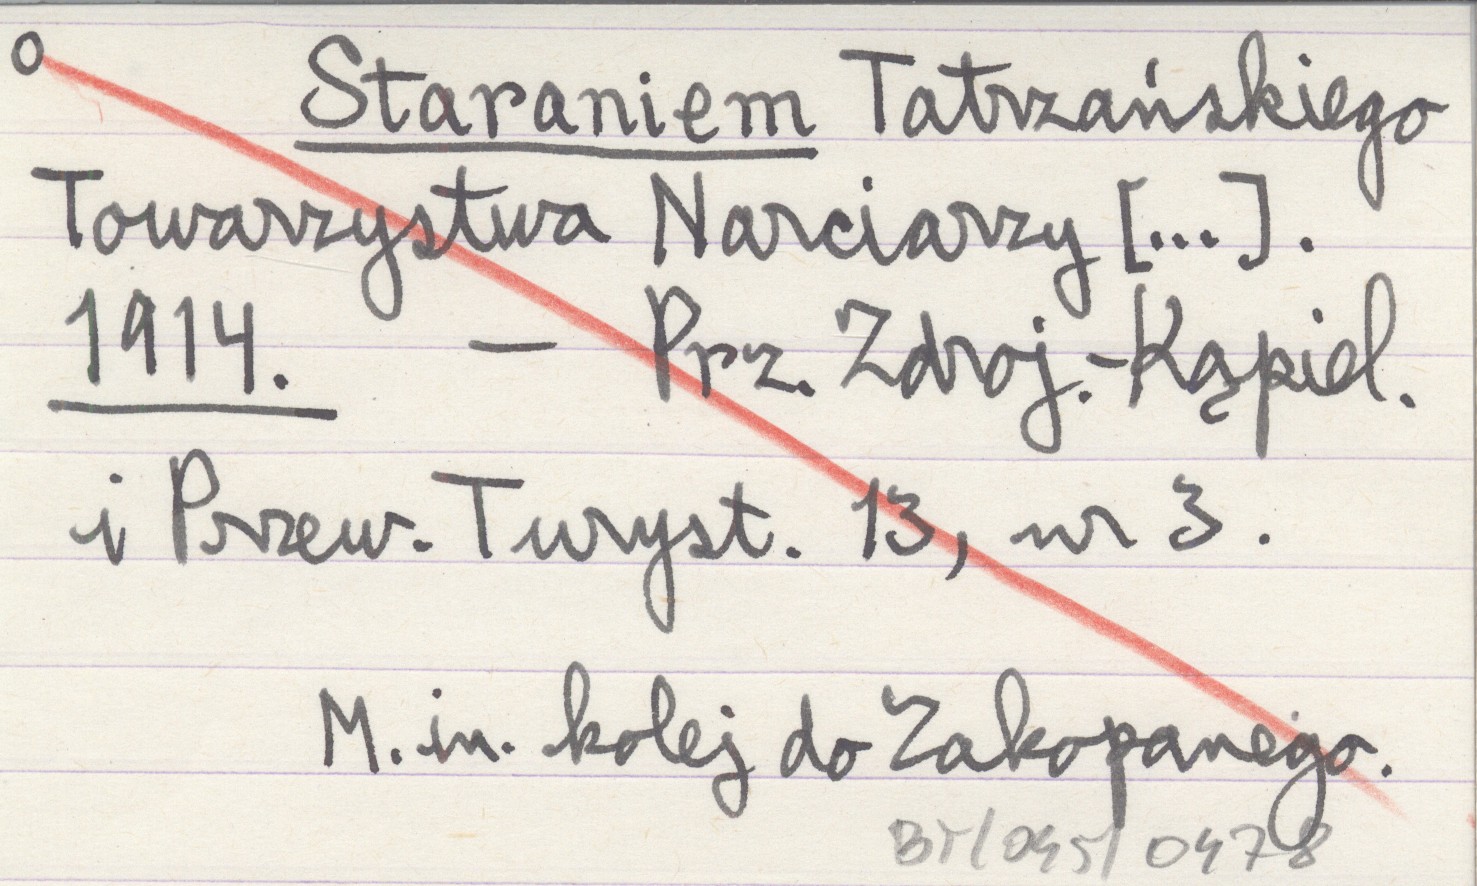 o Staraniem Tatrzańskiego
Towarzystwa Narciarzy [...].
1914. — Prz. Zdroj.-Kąpiel.
i Przew. Turyst. 13, nr 3.
M. in. kolej do Zakopanego.
BT/045/0478